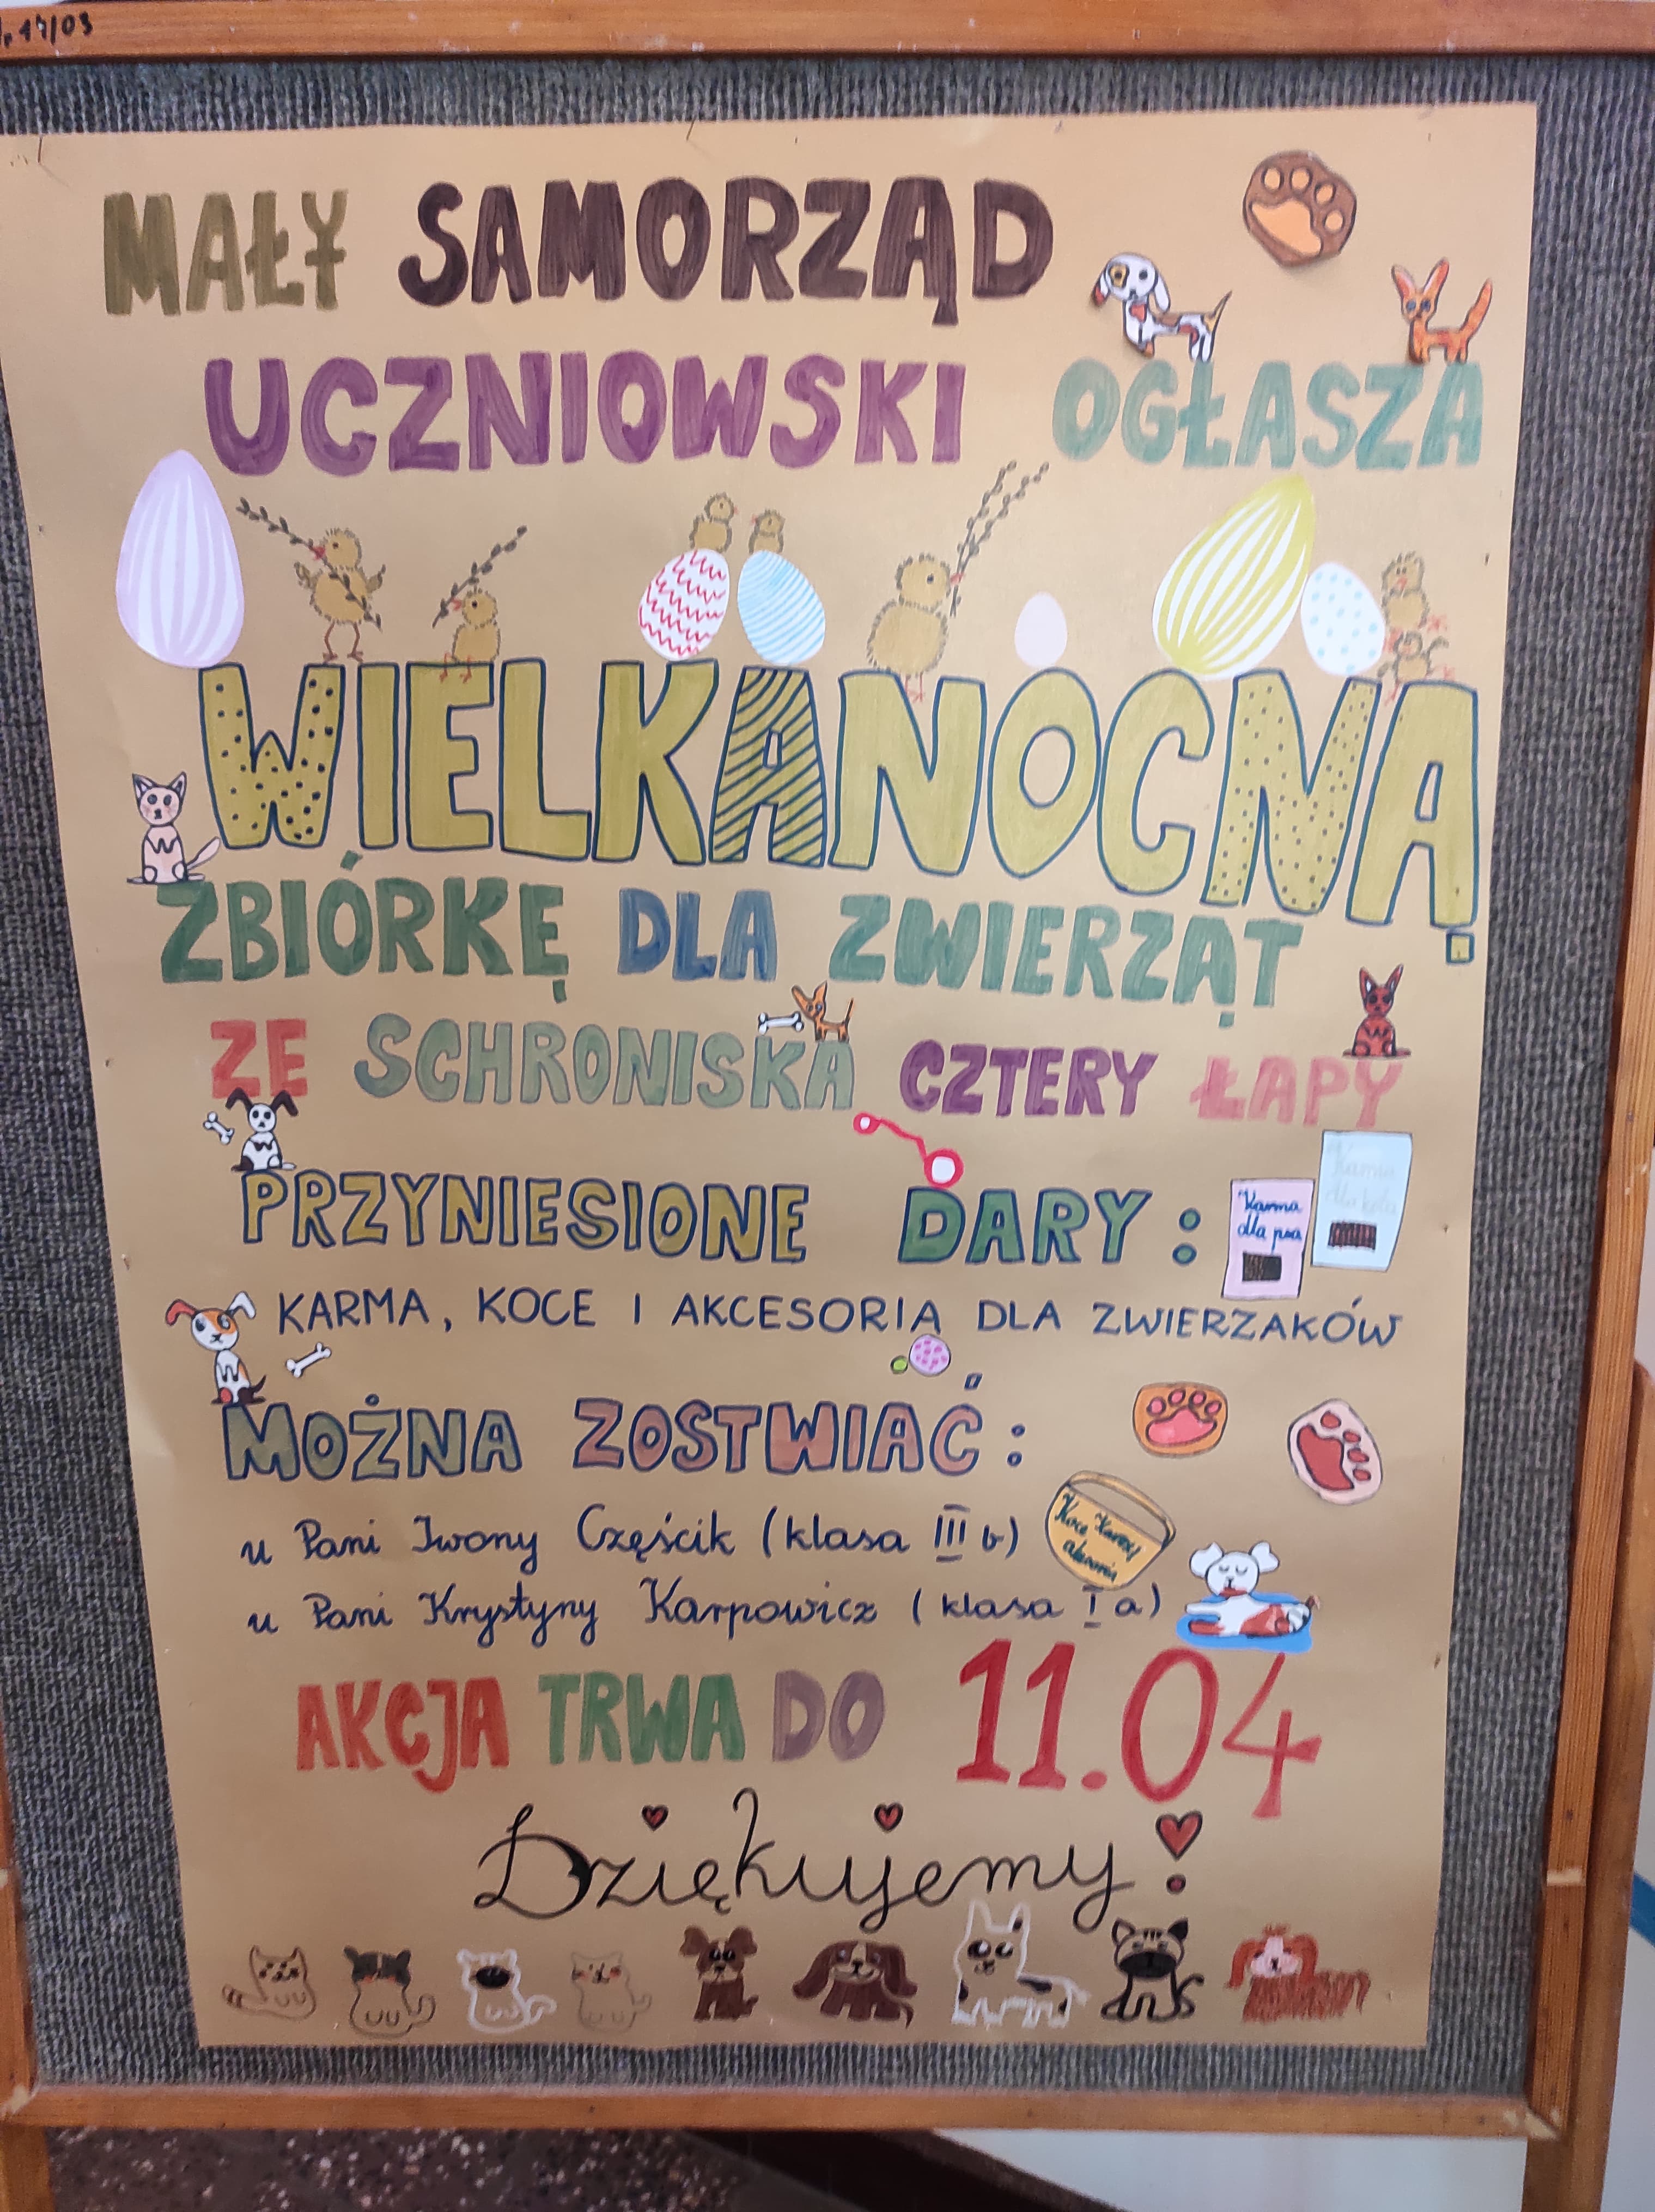 17/03
MAŁY SAMORZĄD
UCZNIOWSKI OGŁASZA
WIELKANOCNĄ
ZBIÓRKĘ DLA ZWIERZĄT
ZE SCHRONISKA CZTERY ŁAPY
PRZYNIESIONE DARY:
Karma
dla psa
Karma
dla kota
KARMA, KOCE I AKCESORIA DLA ZWIERZAKÓW
MOŻNA ZOSTWIAĆ:
u Pani Iwony Częścik (klasa III b)
Koce
u Pani Krystyny Karpowicz (klasa I a)
AKCJA TRWA DO 11.04
Dziękujemy!